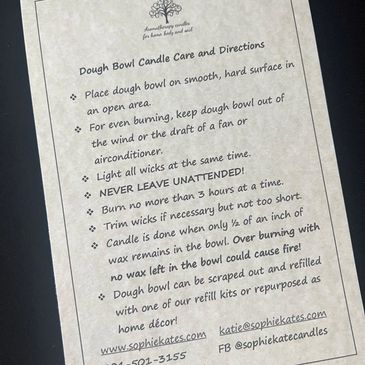 aromatherapy candles
for home body and soul
Dough Bowl Candle Care and Directions
❖ Place dough bowl on smooth, hard surface in
an open area.
❖ For even burning, keep dough bowl out of
the wind or the draft of a fan or
airconditioner.
❖ Light all wicks at the same time.
❖ NEVER LEAVE UNATTENDED!
❖ Burn no more than 3 hours at a time.
❖ Trim wicks if necessary but not too short.
❖ Candle is done when only ½ of an inch of
wax remains in the bowl. Over burning with
no wax left in the bowl could cause fire!
❖ Dough bowl can be scraped out and refilled
with one of our refill kits or repurposed as
home décor!
www.sophiekates.com katie@sophiekates.com
-501-3155 FB @sophiekatecandles